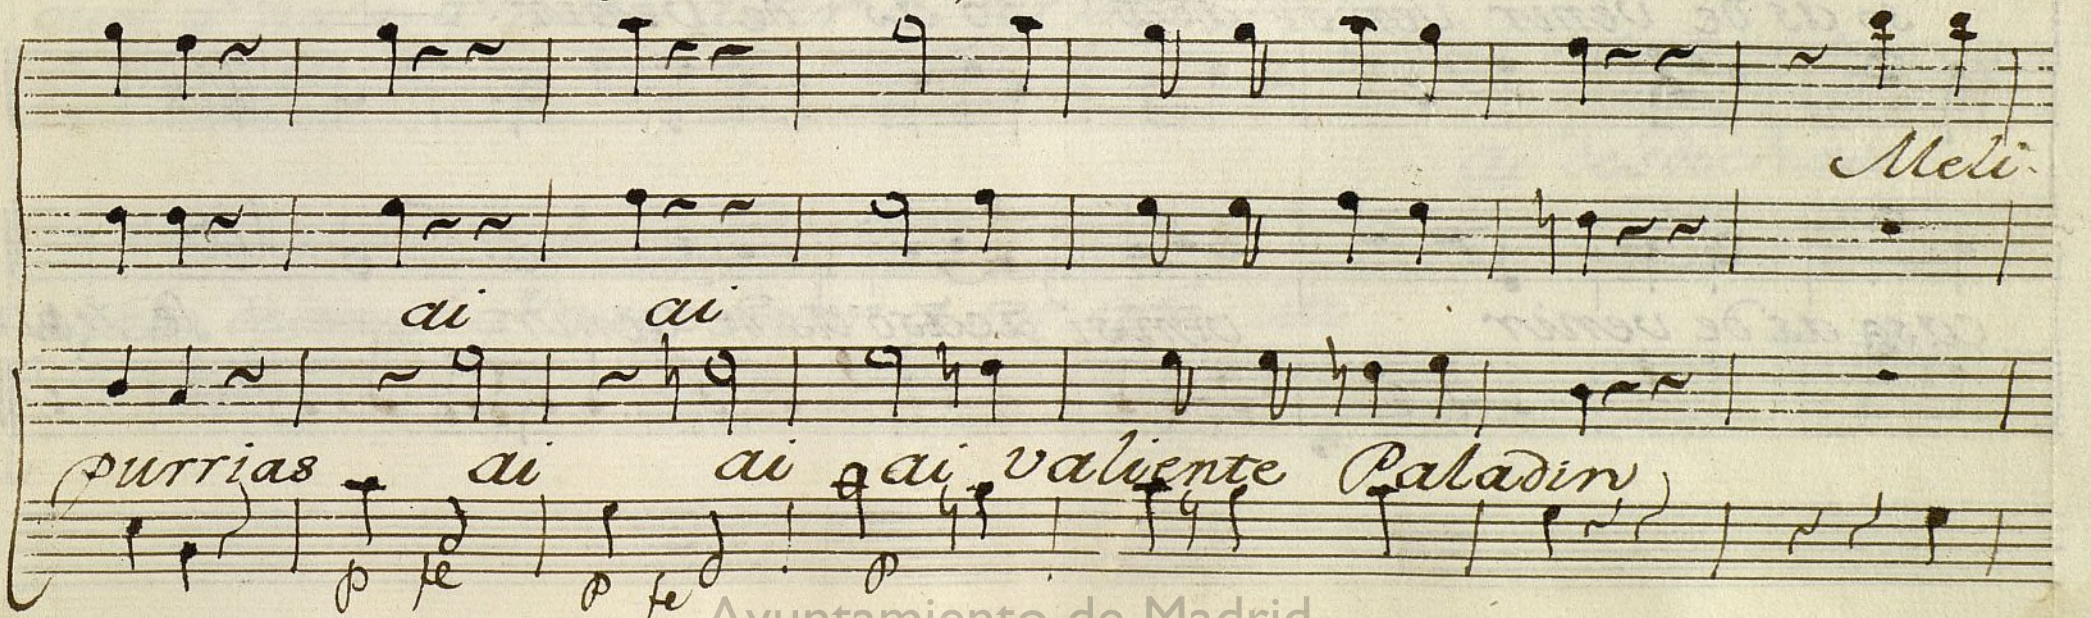 Meli-
ai ai
purrias ai ai ai valiente Paladin
p fe p fe p
Ayuntamiento de Madrid